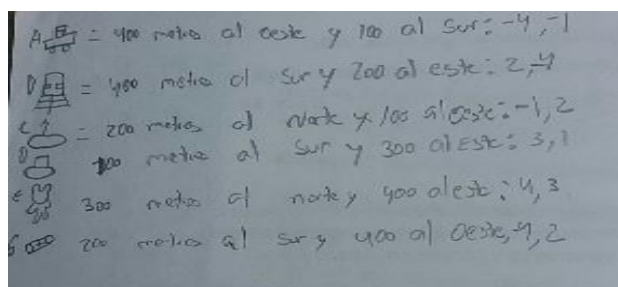 A = 400 metros al oeste y 100 al sur: -4, -1
D = 400 metros al sur y 200 al este: 2, -4
C = 200 metros al norte y 100 al oeste: -1, 2
100 metros al sur y 300 al este: 3, 1
E 300 metros al norte y 400 al este: 4, 3
200 metros al sur y 400 al oeste, -4, 2